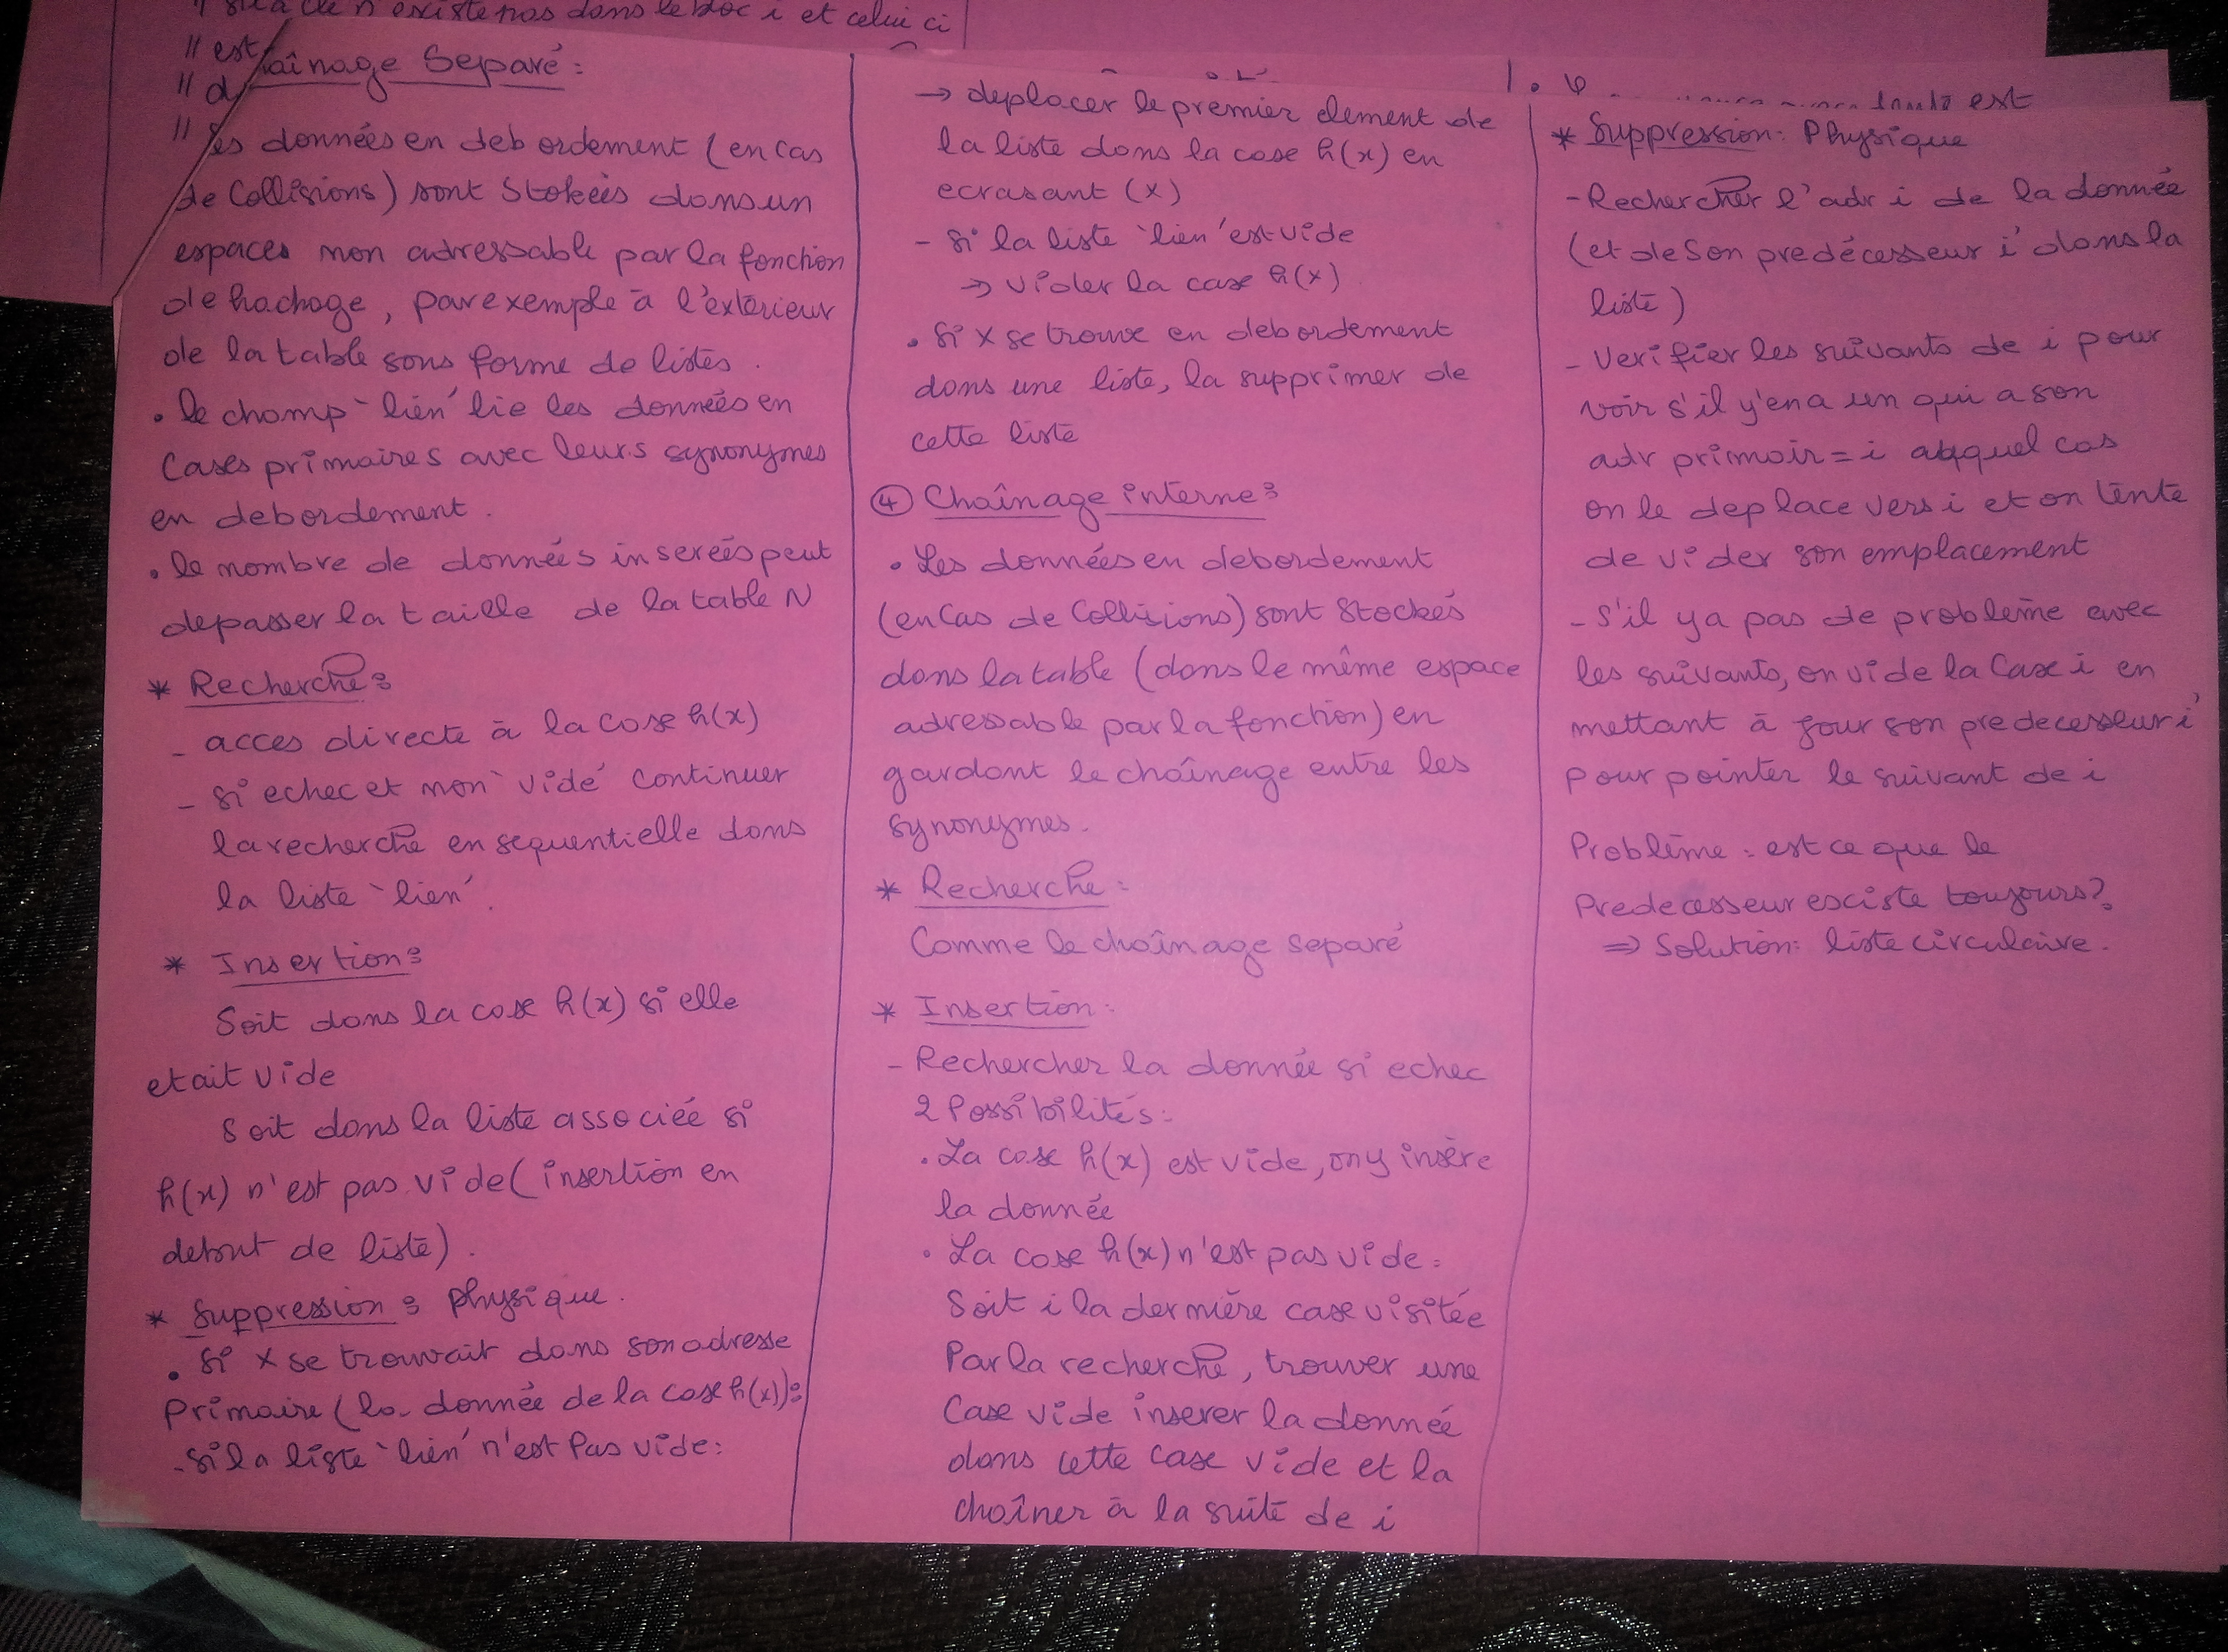 // si la clé n'existe pas dans le bloc i et celui ci
// est
// d
//
chaînage Separé :
Les données en debordement (en cas
de Collisions) sont Stokeés dans un
espaces non adressable par la fonction
de hachage, par exemple à l'extérieur
de la table sous forme de listes.
• le champ 'lien' lie les données en
Cases primaires avec leurs synonymes
en debordement.
• le nombre de données inserées peut
depasser la taille de la table N
* Recherche :
- acces directe à la case h(x)
- si echec et non 'vide' continuer
la recherche en sequentielle dans
la liste 'lien'.
* Insertion :
Soit dans la case h(x) si elle
etait vide
Soit dans la liste associée si
h(x) n'est pas vide (insertion en
debut de liste).
* Suppression : physique.
• si x se trouvait dans son adresse
primaire (la donnée de la case h(x)) :
- si la liste 'lien' n'est Pas vide :
→ deplacer le premier element de
la liste dans la case h(x) en
ecrasant (x)
- si la liste 'lien' est vide
→ vider la case h(x)
• si x se trouve en debordement
dans une liste, la supprimer de
cette liste
④ Chaînage interne :
• Les données en debordement
(en Cas de Collisions) sont Stockés
dans la table (dans le même espace
adressable par la fonction) en
gardant le chaînage entre les
synonymes.
* Recherche :
Comme le chaînage separé
* Insertion :
- Rechercher la donnée si echec
2 Possibilités :
• La case h(x) est vide, on y insère
la donnée
• La case h(x) n'est pas vide :
Soit i la dernière case visitée
Par la recherche, trouver une
Case vide inserer la donnée
dans cette case vide et la
chaîner à la suite de i
est
* Suppression : Physique
- Rechercher l'adr i de la donnée
(et de Son predécesseur i' dans la
liste)
- Verifier les suivants de i pour
voir s'il y'en a un qui a son
adr primair = i auquel cas
on le deplace vers i et on tente
de vider son emplacement
- S'il y a pas de problème avec
les suivants, on vide la Case i en
mettant à jour son predecesseur i'
pour pointer le suivant de i
Problème : est ce que le
Predecesseur esciste toujours ?
⇒ Solution : liste circulaire.